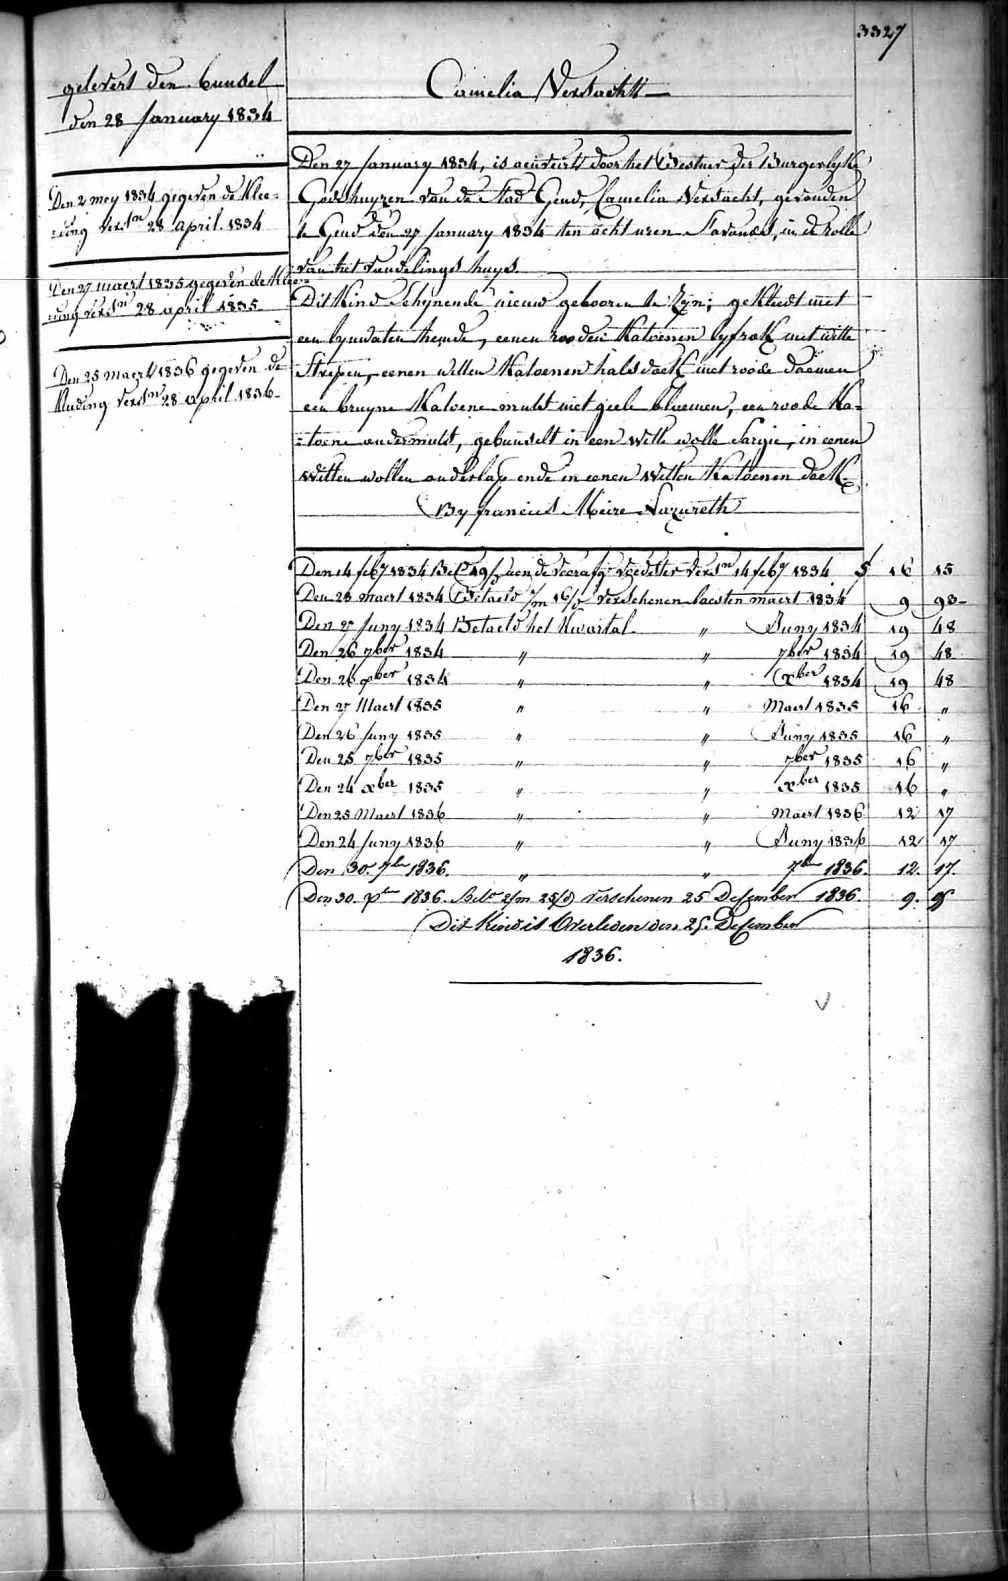 3327
gelevert den bundel
den 28 January 1834
Den 2 mey 1834 gegeven de klee=
=ding versn 28 april. 1834
Den 27 maert 1835 gegeven de klee=
=ding versn 28 april 1835
Den 25 maert 1836 gegeven de
kleding versn 28 april. 1836-
Camelia Verdacht
Den 27 January 1834, is aenveerd door het Bestuer der Burgerlyke
Godshuyzen van de Stad Gend, Camelia Verdacht, gevonden
te Gend den 27 January 1834 ten acht uren s'avonds, in de rolle
van het vondelings huys
Dit kind schynende nieuw gebooren te zyn; gekleedt met
een lynwaten hemde, eenen rooden katoenen lyfrok met witte
strepen, eenen witten katoenen hals doek met roode bloemen
een bruyne katoene muts met geele bloemen, een roode ka=
=toene ondermuts, gebunselt in een witte wolle sargie, in eenen
witten wollen onderlap ende in eenen witten katoenen doek
By francies Meire Nazareth
Den 14 feby 1834 Bet 19/ aen de voorafg voedster versn 14 feby 1834 5 16 15
Den 28 maert 1834 Betaeld 1/m 16/d verschenen laesten maert 1834 9 93-
Den 27 Juny 1834 Betaeld het kwartal " Juny 1834 19 48
Den 26 7ber 1834 " " 7ber 1834 19 48
Den 26 xber 1834 " " xber 1834 19 48
Den 27 Maert 1835 " " Maert 1835 16 "
Den 26 Juny 1835 " " Juny 1835 16 "
Den 25 7ber 1835 " " 7ber 1835 16 "
Den 24 xber 1835 " " xber 1835 16 "
Den 25 Maert 1836 " " Maert 1836 12 17
Den 24 Juny 1836 " " Juny 1836 12 17
Den 30. 7ber 1836. " " 7ber 1836. 12. 17.
Den 30. xber 1836. Betd 2/m 25/d Verschenen 25 Desember 1836. 9.
Dit Kind is Overleden den 25. Desember
1836.